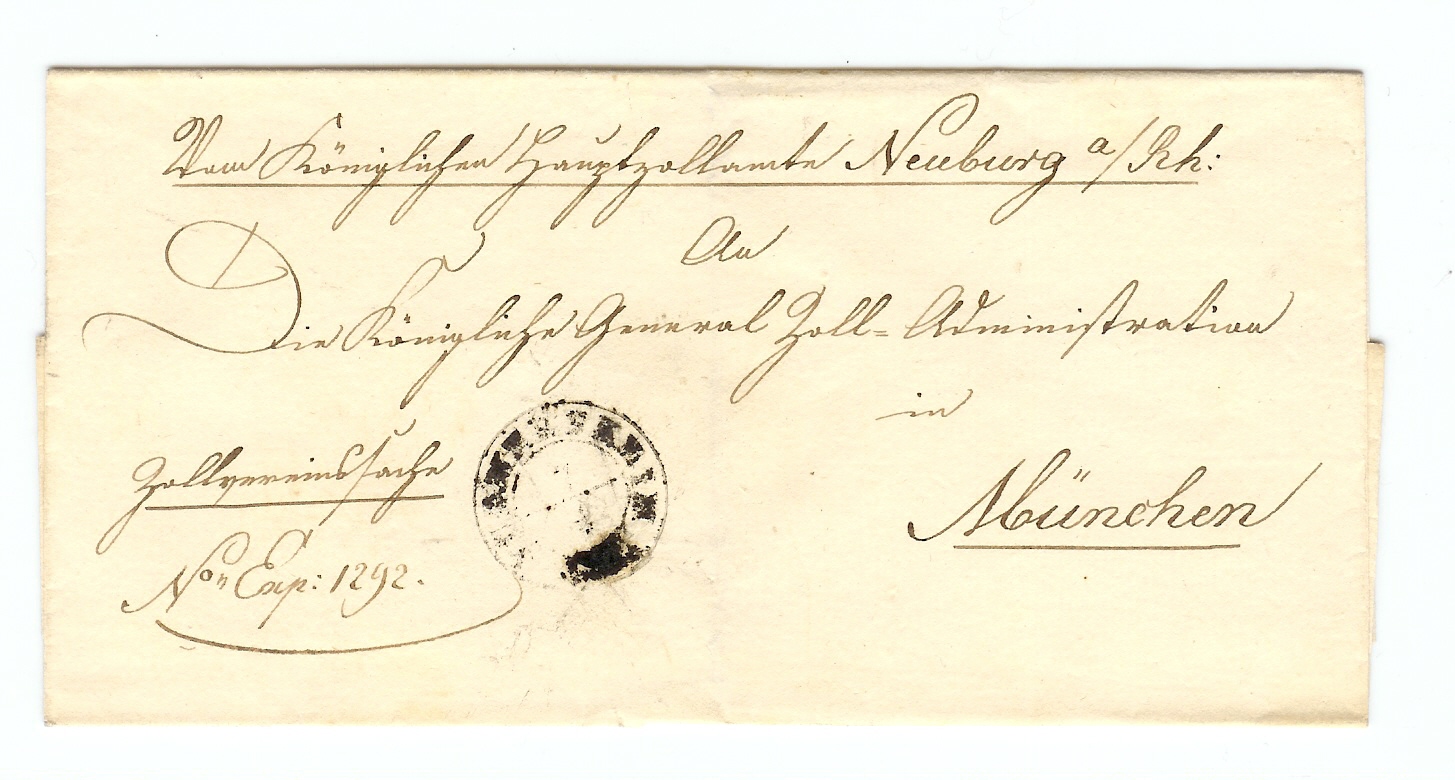 Vom Königlichen Hauptzollamte Neuburg a/Rh:
An
Die Königliche General Zoll=Administration
in
München
Zollvereinssache
No„ Exp: 1292.